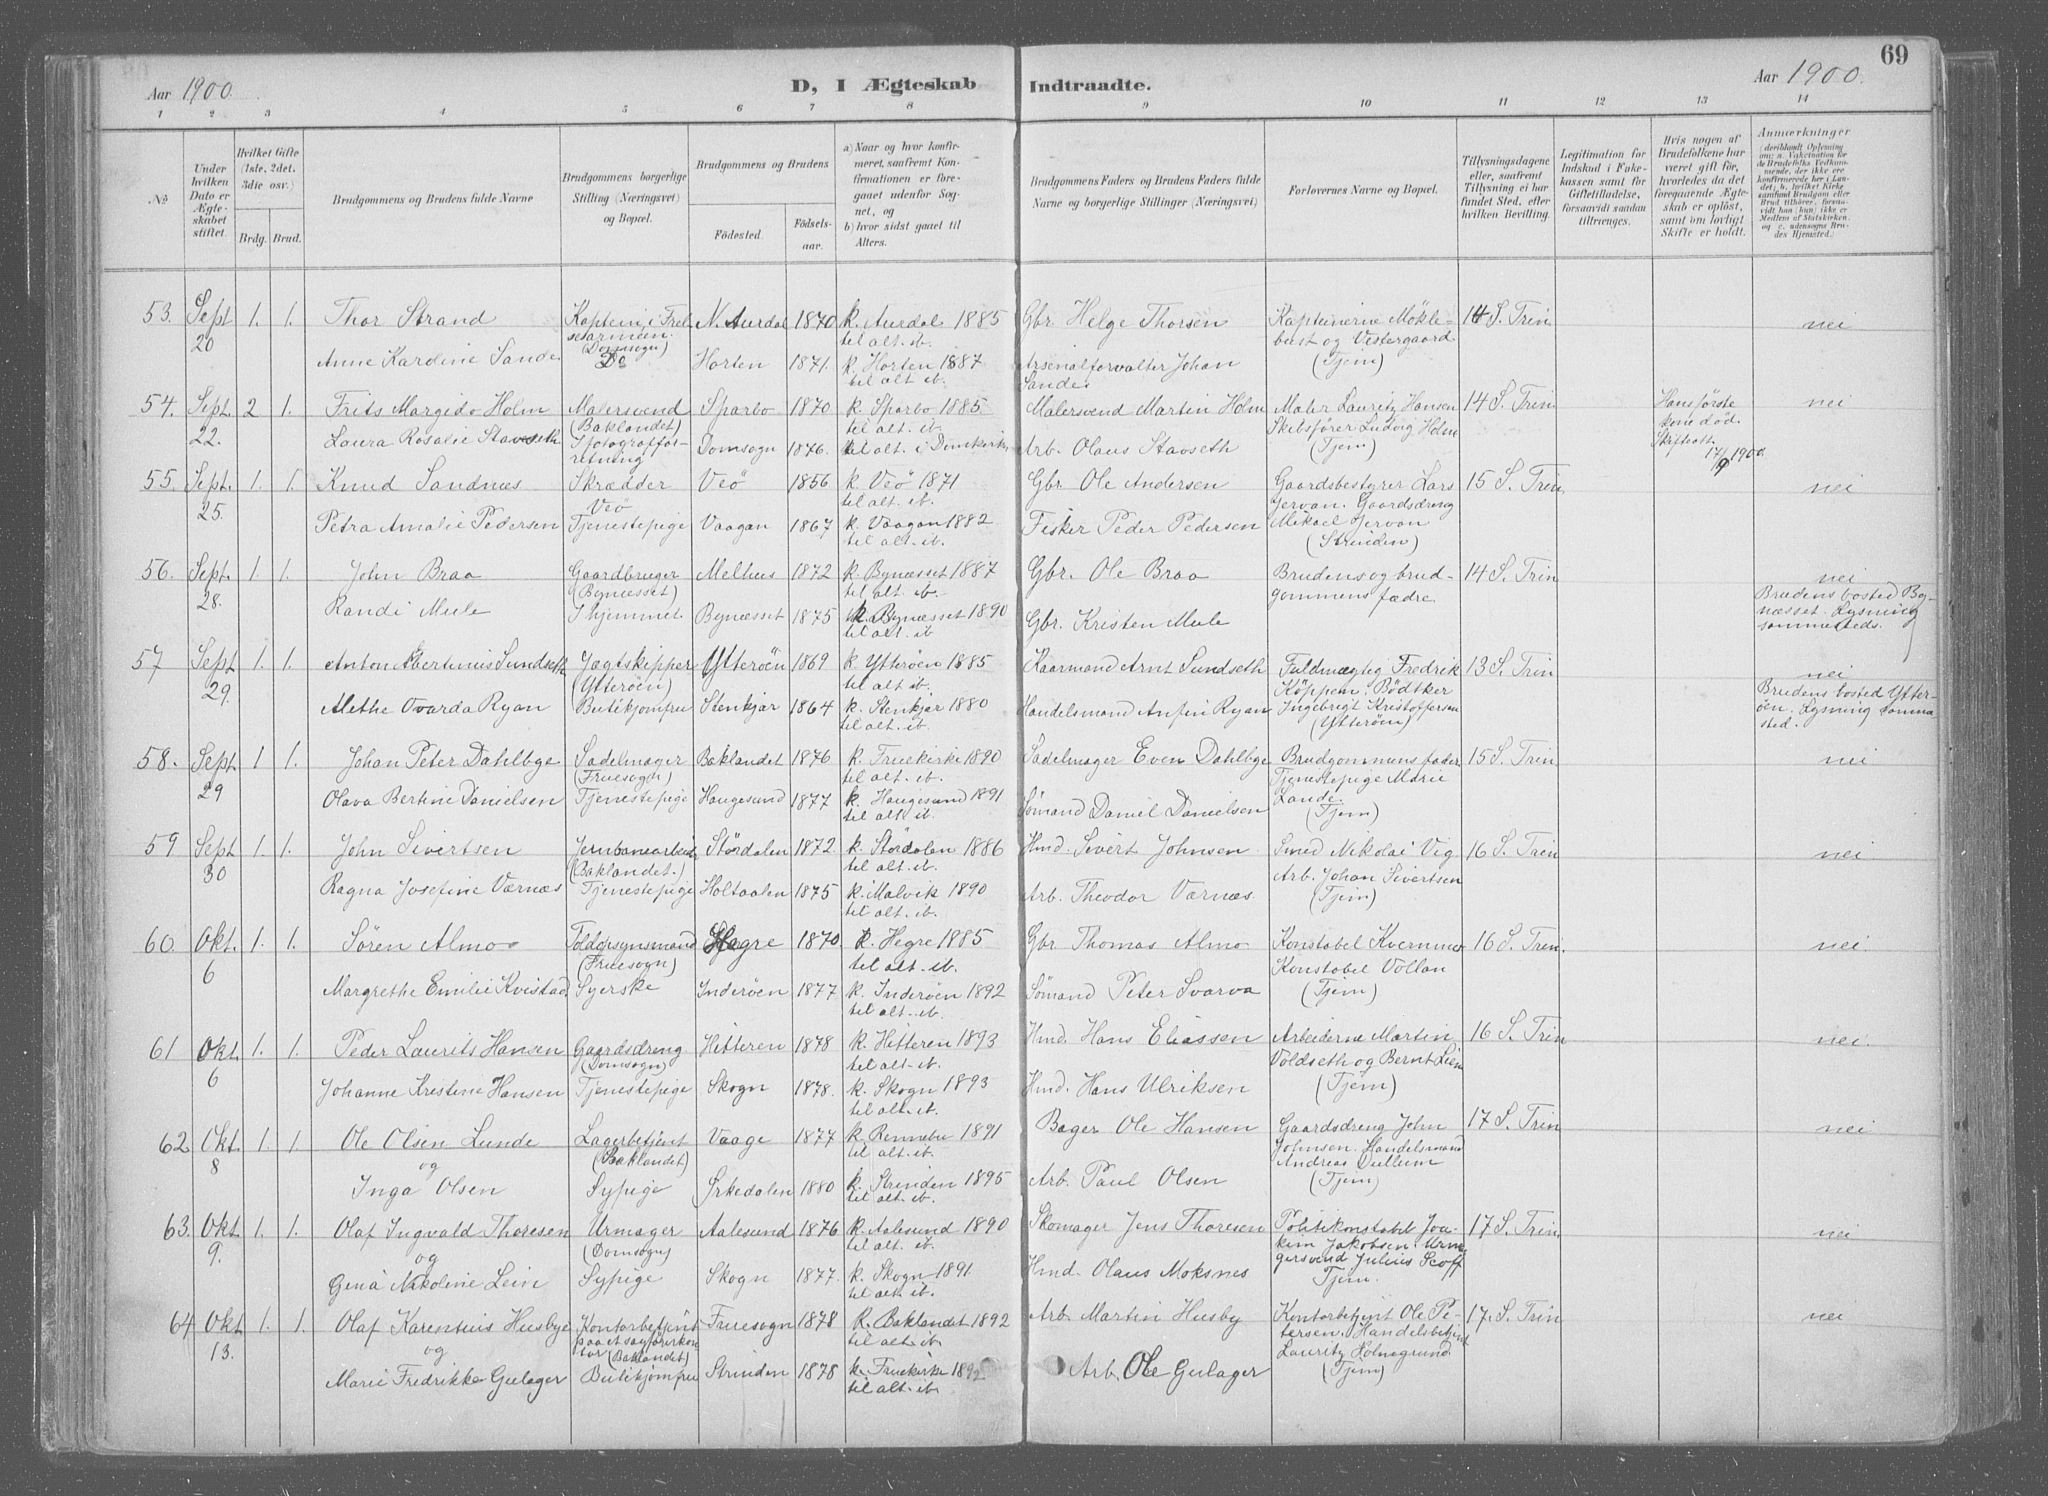 69
Aar 1900.
D, I Ægteskab Indtraadte.
Aar 1900.
1 2 3 4 5 6 7 8 9 10 11 12 13 14
No
Under hvilken Dato er Ægteskabet stiftet.
Hvilket Gifte (1ste, 2det. 3die osv.)
Brdg. Brud.
Brudgommens og Brudens fulde Navne
Brudgommens borgerlige Stilling (Næringsvei) og Bopæl.
Brudgommens og Brudens
Fødested. Fødselsaar.
a) Naar og hvor konfirmeret, saafremt Konfirmationen er foregaaet udenfor Sognet, og
b) hvor sidst gaaet til Alters.
Brudgommens Faders og Brudens Faders fulde Navne og borgerlige Stillinger (Næringsvei)
Forlovernes Navne og Bopæl.
Tillysningsdagene eller, saafremt Tillysning ei har fundet Sted, efter hvilken Bevilling.
Legitimation for Indskud i Enkekassen samt for Giftetilladelse, forsaavidt saadan tiltrænges.
Hvis nogen af Brudefolkene har været gift før, hvorledes da det foregaaende Ægteskab er opløst, samt om lovligt Skifte er holdt.
Anmærkninger
53. Sept 20 1. 1. Thor Strand Kaptein i Frelsesarmeen (Domsogn) N. Aurdal 1870 k. Aurdal 1885 til alt. ib. Gbr. Helge Thorsen Kapteinerne Møklebust og Vestergaard (Tjem) 14 S. Trin nei
Anne Kardine Sande Do Horten 1871. k. Horten 1887 til alt ib. Arsenalforvalter Johan Sande
54. Sept 22. 2 1. Frits Margido Holm Malersvend (Baklandet) Sparbo 1870 k. Sparbo 1885 til alt. ib. Malersvend Martin Holm Maler Lauritz Hansen Skibsfører Ludvig Holm (Tjem) 14 S. Trin Hans første kone død. Skifteatt. 17/9 1900. nei
Laura Rosalie Stavseth I fotografforretning Domsogn 1876. til alt. i Domkirken Arb. Olaus Stavseth
55. Sept. 25. 1. 1. Knud Sandnes Skrædder Veö Veö 1856 k. Veö 1871 til alt. ib. Gbr. Ole Andersen Gaardsbestyrer Lars Jervan. Gaardsdreng Mikael Jervan (Strinden) 15 S. Trin nei
Petra Amalie Pedersen Tjenestepige Vaagan 1867 k. Vaagan 1882 til alt. ib. Fisker Peder Pedersen
56. Sept. 28. 1. 1. John Braa Gaardbruger (Bynæsset) Melhus 1872 k. Bynæsset 1887 til alt. ib. Gbr. Ole Braa Brudens og brudgommens fædre 14 S. Trin nei
Randi Mule I hjemmet. Bynæsset 1875 k. Bynæsset 1890 til alt. ib Gbr. Kristen Mule Brudens bosted Bynæsset. Lysning sammesteds.
57 Sept 29. 1. 1. Anton Albertinius Sundseth Jægtskipper (Ytterøen) Ytterøen 1869 k. Ytterøen 1885 til alt ib. Kaarmand Arnt Sundseth Fuldmægtig Fredrik Köppen. Bödtker Ingebrigt Kristoffersen (Ytterøen) 13 S. Trin nei
Alethe Ovarda Ryan Butikjomfru Stenkjær 1864 k. Stenkjær 1880 til alt. ib. Handelsmand Anfin Ryan Brudens bosted Ytterøen. Lysning sammasted.
58. Sept 29 1 1. Johan Peter Dahlbye Sadelmager (Fruesogn) Baklandet 1876 k. Fruekirke 1890 til alt. ib. Sadelmager Even Dahlbye Brudgommens fader Tjenestepige Marie Lande. (Tjem) 15 S. Trin nei
Olava Bertine Danielsen Tjenestepige Haugesund 1877 k. Haugesund 1891 til alt. ib. Sømand Daniel Danielsen
59 Sept 30 1. 1. John Sivertsen Jernbanearbeider (Baklandet.) Størdalen 1872. k. Størdalen 1886 til alt. ib. Hmd. Sivert Johnsen Smed Nikolai Vig Arb. Johan Sivertsen (Tjem) 16 S. Trin nei
Ragna Josefine Værnæs Tjenestepige Holtaalen 1875 k. Malvik 1890 til alt. ib. Arb. Theodor Værnæs.
60. Okt. 6 1. 1. Søren Almo Toldopsynsmand (Fruesogn) Hegre 1870 k. Hegre 1885 til alt. ib. Gbr Thomas Almo Konstabel Kvernmo Konstabel Vollan (Tjem) 16 S. Trin. nei
Margrethe Emilie Kvistad Syerske Inderøen 1877 k. Inderøen 1892 til alt. ib. Sømand Peter Svarva
61 Okt. 6 1. 1. Peder Laurits Hansen Gaardsdreng (Domsogn) Hitteren 1878 k. Hitteren 1893 til alt. ib. Hmd. Hans Eliassen Arbeiderne Martin Voldseth og Bernt Lien (Tjem) 16 S. Trin nei
Johanne Kristine Hansen Tjenestepige Skogn 1878. k. Skogn 1893 til alt. ib. Hmd. Hans Ulriksen
62 Okt. 8 1. 1. Ole Olsen Lunde Lagerbetjent (Baklandet) Vaage 1877 k. Rennebu 1891 til alt. ib. Bager Ole Hansen Gaardsdreng John Johnsen. Handelsmand Andreas Dullum (Tjem) 17 S. Trin nei
og
Inga Olsen Sypige Ørkedalen 1880 k. Strinden 1895 til alt. ib. Arb. Paul Olsen
63. Okt 9. 1. 1. Olaf Ingvald Thoresen Urmager (Domsogn) Aalesund 1876 k. Aalesund 1890 til alt. ib. Skomager Jens Thoresen Politikonstabel Joakim Jakobsen. Urmagersvend Julius Scoff Tjem. 17 S. Trin nei
og
Gena Nikoline Lein Sypige Skogn 1877. k. Skogn 1891. til alt ib. Hmd. Olaus Moksnes
64 Okt 13. 1. 1. Olaf Karentius Husbye Kontorbetjent paa et sagførerkontor (Baklandet) Fruesogn 1878 k. Baklandet 1892 til alt. ib. Arb. Martin Husby Kontorbetjent Ole Petersen. Handelsbetjent Lauritz Holmsgrund (Tjem) 17. S. Trin nei
og
Marie Fredrikke Gulager Butikjomfru Strinden 1878 k. Fruekirke 1892 til alt. ib. Arb. Ole Gulager